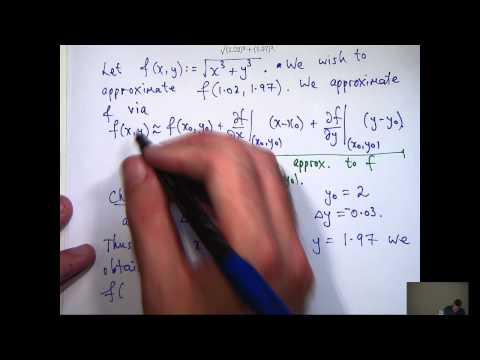 √(1.02)³ + (1.97)³
Let f(x,y) := √x³ + y³. • We wish to
approximate f(1.02, 1.97). We approximate
f via
f(x,y) ≈ f(x₀,y₀) + ∂f/∂x|(x₀,y₀) (x-x₀) + ∂f/∂y|(x₀,y₀) (y-y₀).
approx. to f
y₀).
Ch y₀ = 2
a Δ Δy = -0.03.
Thus x y = 1.97 we
obtai
f(